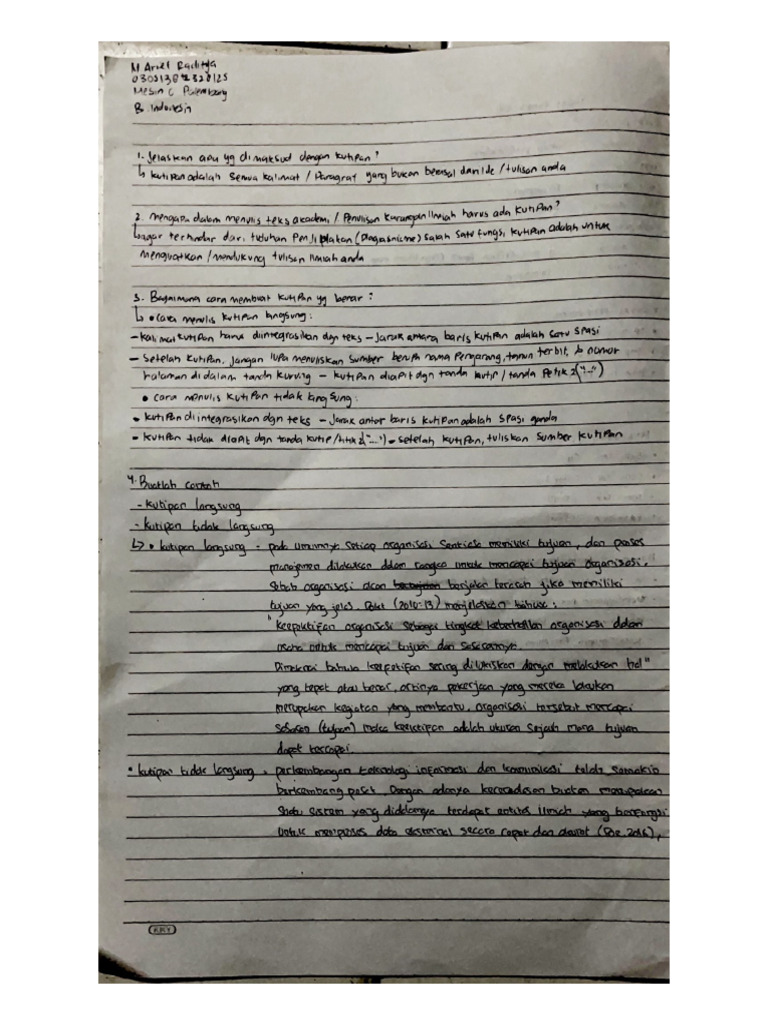 M Ariel Raditya
03021382328125
Mesin C Palembang
B. Indonesia
1. Jelaskan apa yg dimaksud dengan kutipan?
↳ kutipan adalah semua kalimat / Paragraf yang bukan berasal dari Ide / tulisan anda
2. mengapa dalam menulis teks akademi / Penulisan karangan Ilmiah harus ada kutipan?
↳ agar terhindar dari tuduhan Penjiplakan (Plagiasrisme) salah satu fungsi kutipan adalah untuk
menguatkan / mendukung tulisan Ilmiah anda
3. Bagaimana cara membuat kutipan yg benar:
↳ • cara menulis kutipan langsung:
- kalimat kutipan harus diintegrasikan dgn teks - Jarak antara baris kutipan adalah satu spasi
- setelah kutipan, jangan lupa menuliskan sumber berupa nama Pengarang, tahun terbit, & nomor
halaman di dalam tanda kurung - kutipan diapit dgn tanda kutip / tanda Petik 2 ("...")
• cara menulis kutipan tidak langsung:
- kutipan diintegrasikan dgn teks - Jarak antar baris kutipan adalah spasi ganda
- kutipan tidak diapit dgn tanda kutip / 2 ("...") - setelah kutipan, tuliskan sumber kutipan
4. Buatlah contoh
- kutipan langsung
- kutipan tidak langsung
↳ • kutipan langsung = pada umumnya setiap organisasi senantiasa memiliki tujuan, dan proses
manajemen dilakukan dalam rangka untuk mencapai tujuan organisasi.
Sebab organisasi akan berjalan terarah jika memiliki
tujuan yang jelas. (2010:13) menjelaskan bahwa:
"keefektifan organisasi sebagai tingkat keberhasilan organisasi dalam
usaha untuk mencapai tujuan dan sasarannya.
Dimaknai bahwa keefetifan sering dilukiskan dengan melakukan hal"
yang tepat atau benar, artinya pekerjaan yang mereka lakukan
merupakan kegiatan yang membantu. organisasi tersebut mencapai
sasaran (tujuan) maka keefektifan adalah ukuran sejauh mana tujuan
dapat tercapai.
• kutipan tidak langsung = perkembangan teknologi informasi dan komunikasi telah semakin
berkembang pesat. Dengan adanya kecerdasan buatan merupakan
Suatu sistem yang didalamnya terdapat entitas ilmiah yang berfungsi
Untuk memproses data eksternal secara cepat dan akurat (2016),
KKY